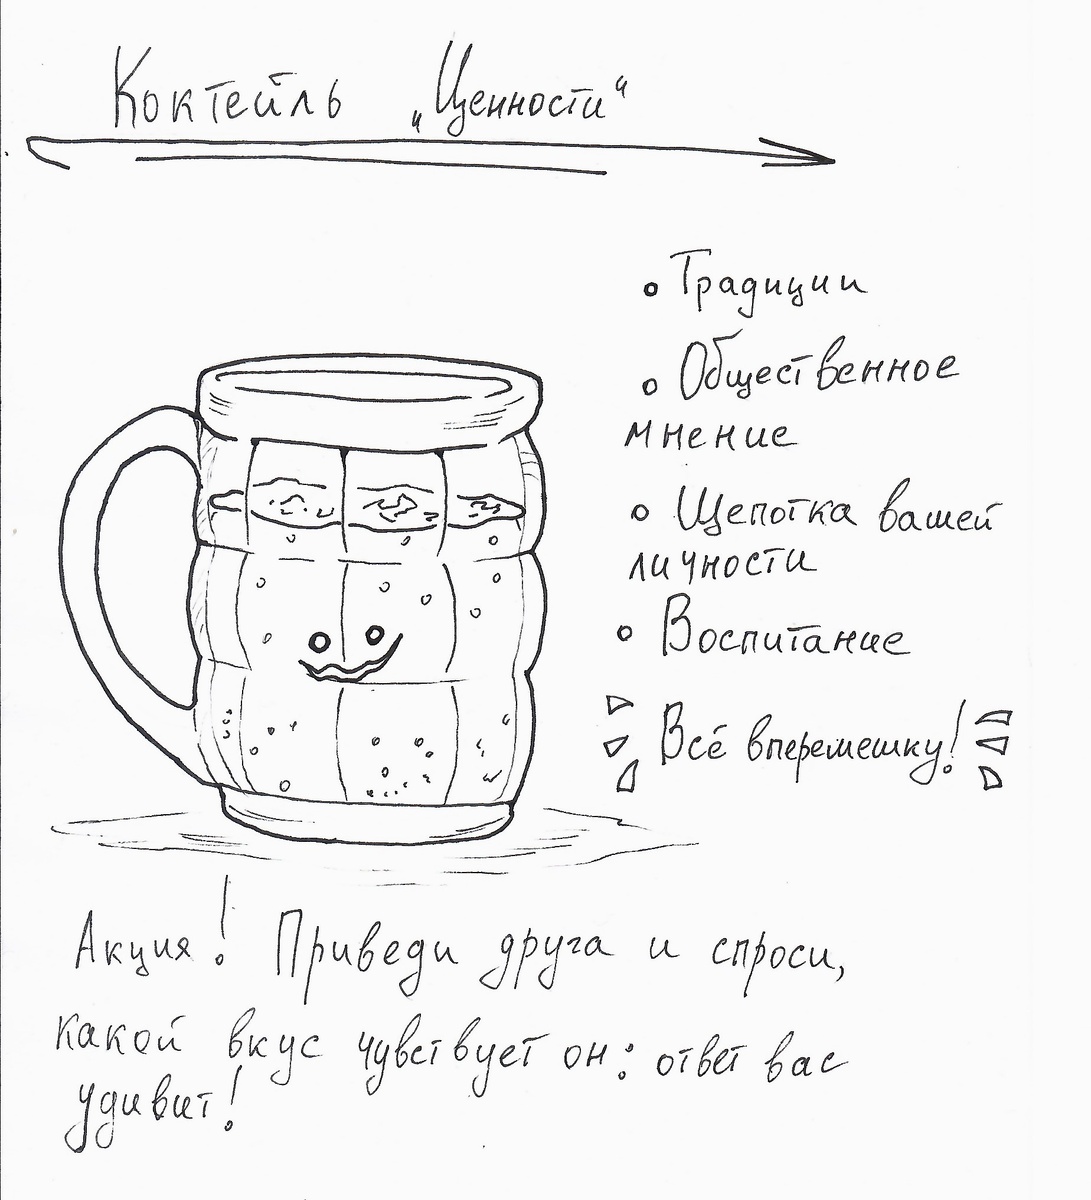 Коктейль „Ценности“
• Традиции
• Общественное
мнение
• Щепотка вашей
личности
• Воспитание
Всё вперемешку!
Акция! Приведи друга и спроси,
какой вкус чувствует он: ответ вас
удивит!